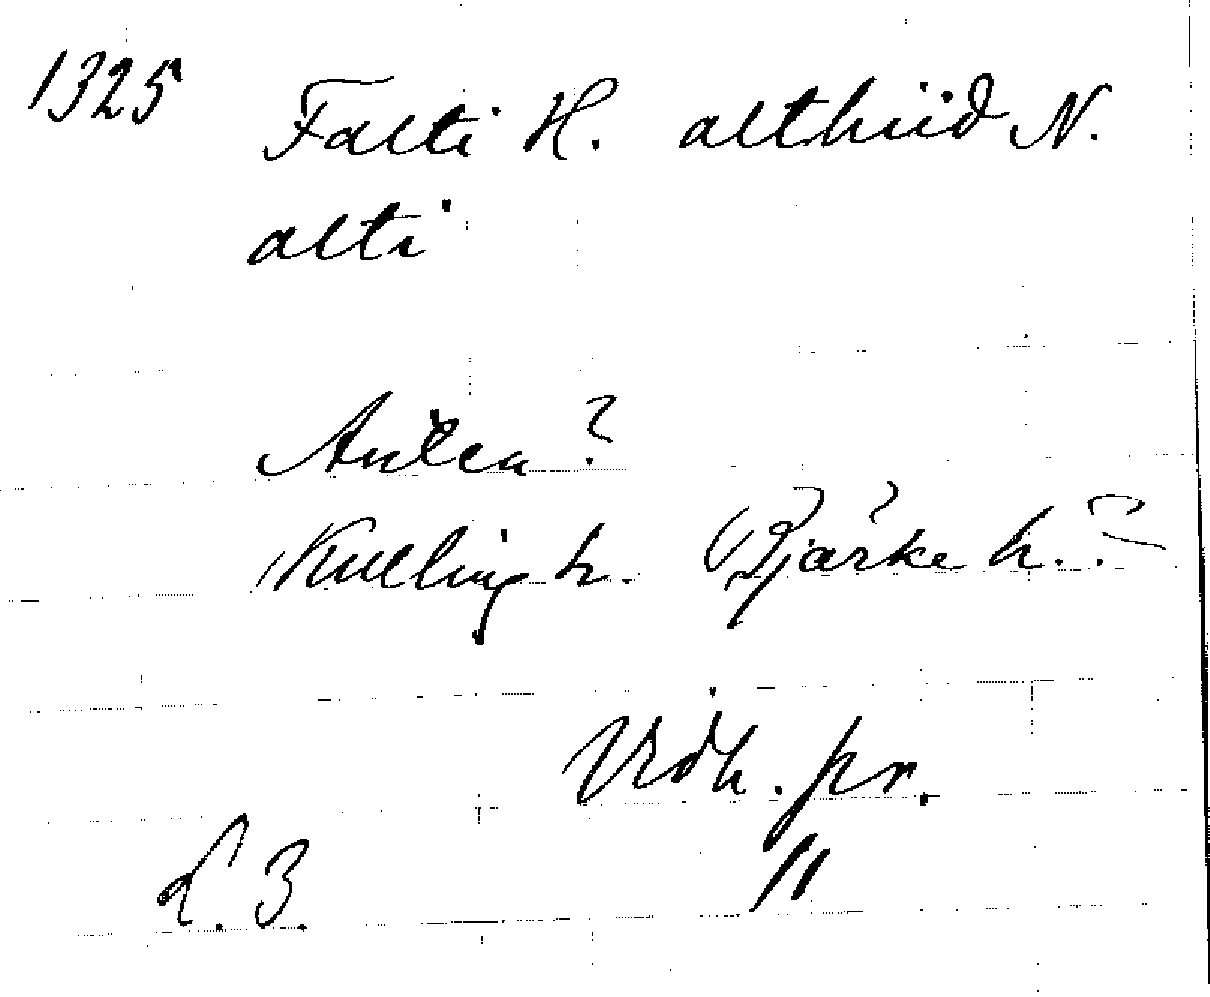 1325 Falti H. althiid N.
alti
Anten?
Kulling h. (Bjärke h.?)
Vidh. pr.
L. 3. "